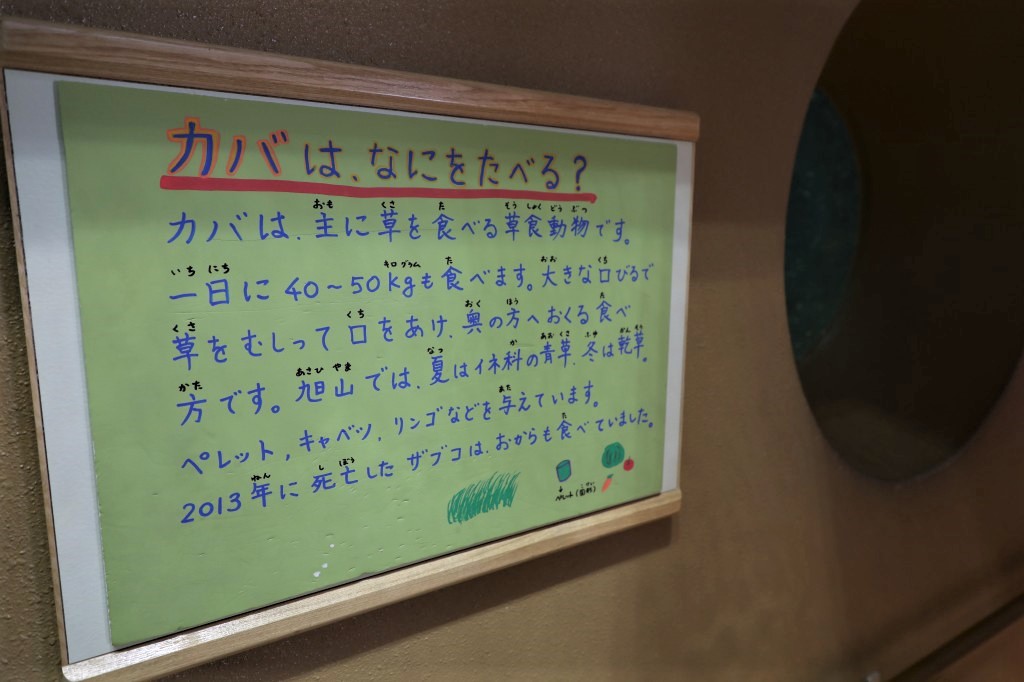 カバは、なにをたべる?
カバは、主に草を食べる草食動物です。
一日に40~50kgも食べます。大きな口びるで
草をむしって口をあけ、奥の方へおくる食べ
方です。旭山では、夏はイネ科の青草、冬は乾草、
ペレット、キャベツ、リンゴなどを与えています。
2013年に死亡したザブコは、おからも食べていました。
ペレット(固形)